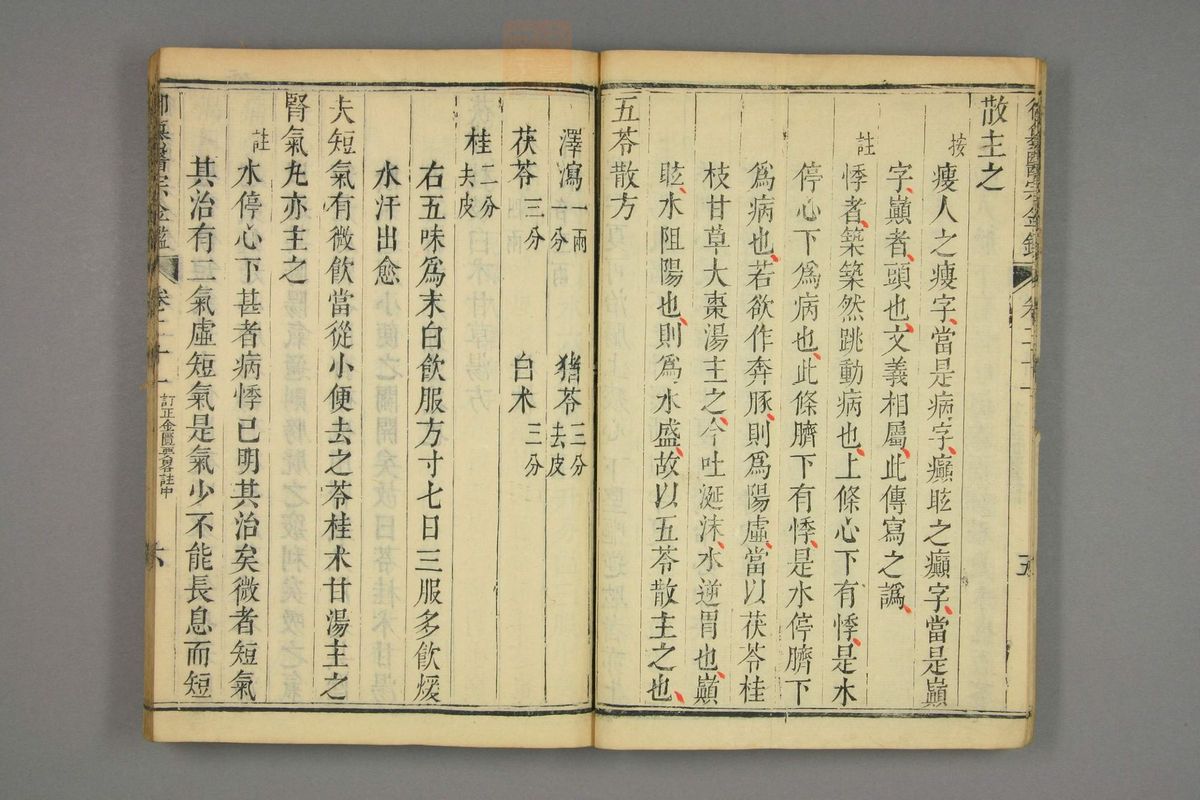 散主之
按 瘦人之瘦字當是病字癲眩之癲字當是巔
字巔者頭也文義相屬此傳寫之譌
註 悸者築築然跳動病也上條心下有悸是水
停心下為病也此條臍下有悸是水停臍下
為病也若欲作奔豚則為陽虛當以茯苓桂
枝甘草大棗湯主之今吐涎沫水逆胃也巔
眩水阻陽也則為水盛故以五苓散主之也
五苓散方
澤瀉一兩一分 豬苓三分去皮
茯苓三分 白术三分
桂二分去皮
右五味為末白飲服方寸七日三服多飲煖
水汗出愈
夫短氣有微飲當從小便去之苓桂术甘湯主之
腎氣丸亦主之
註 水停心下甚者病悸已明其治矣微者短氣
其治有二氣虛短氣是氣少不能長息而短
御纂醫宗金鑑 卷二十一 訂正金匱要畧註中 六